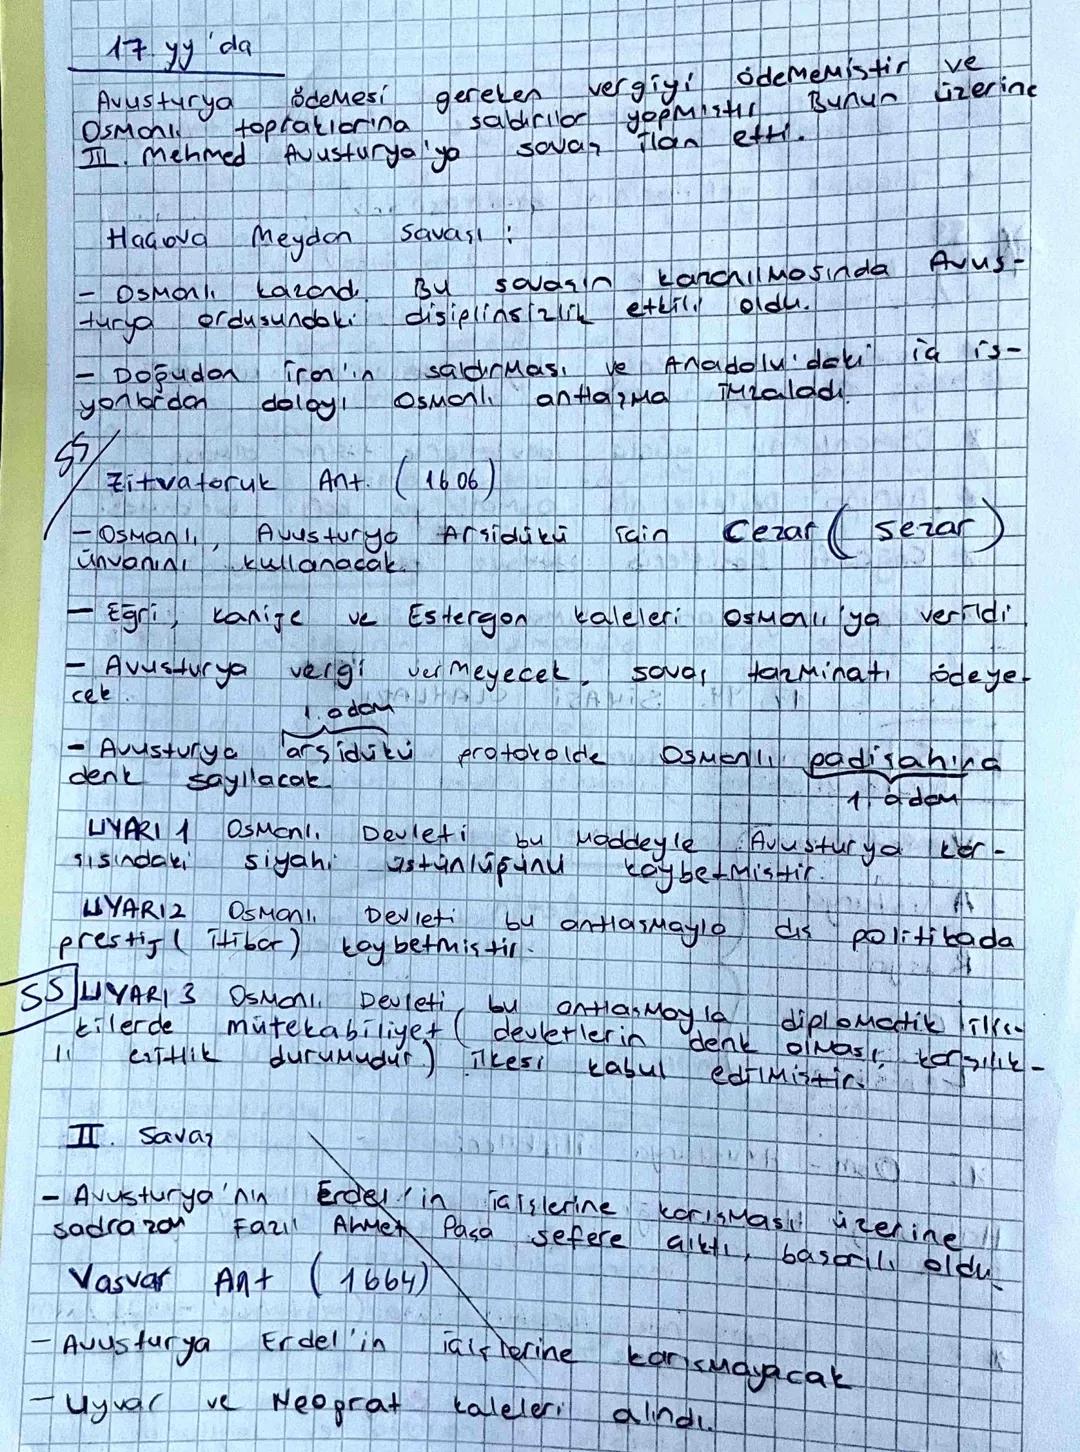 17 yy'da
Avusturya ödemesi gereken vergiyi ödememiştir ve
Osmanlı topraklarına saldırılar yapmıştır Bunun üzerine
III. Mehmed Avusturya'ya savaş ilan etti.
Haçova Meydan Savaşı :
- Osmanlı kazandı. Bu savaşın kazanılmasında Avus-
turya ordusundaki disiplinsizlik etkili oldu.
- Doğudan İran'ın saldırması ve Anadolu'daki iç is-
yanlardan dolayı Osmanlı antlaşma imzaladı.
SS
Zitvatoruk Ant. (1606)
- Osmanlı, Avusturya Arşidükü için Cezar (Sezar)
ünvanını kullanacak.
- Eğri, Kanije ve Estergon kaleleri Osmanlı'ya verildi
- Avusturya vergi vermeyecek, savaş tazminatı ödeye-
cek.
1. adam
- Avusturya arşidükü protokolde Osmanlı padişahına
denk sayılacak
1. adam
UYARI 1 Osmanlı Devleti bu maddeyle Avusturya kar-
şısındaki siyahi üstünlüğünü kaybetmiştir.
UYARI2 Osmanlı Devleti bu antlaşmayla dış politikada
prestij (itibar) kaybetmiştir.
SS UYARI 3 Osmanlı Devleti bu antlaşmayla diplomatik ilişki-
kilerde mütekabiliyet (devletlerin denk olması, karşılık-
lı eşitlik durumudur.) ilkesi kabul edilmiştir.
II. Savaş
- Avusturya'nın Erdel'in içişlerine karışması üzerine
sadrazam Fazıl Ahmet Paşa sefere çıktı, başarılı oldu.
Vasvar Ant (1664)
- Avusturya Erdel'in içişlerine karışmayacak
- Uyvar ve Neograt kaleleri alındı.